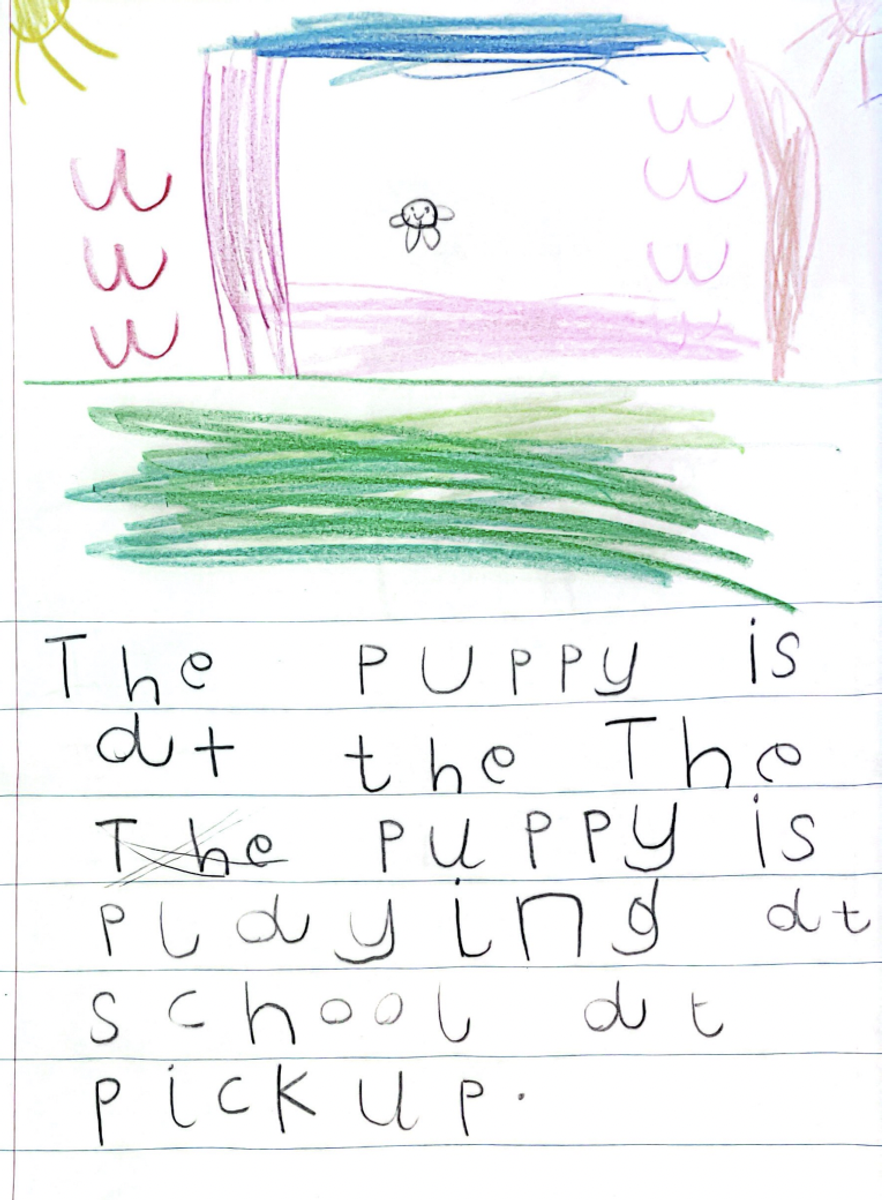 The puppy is
at the The
The puppy is
playing at
school at
pickup.